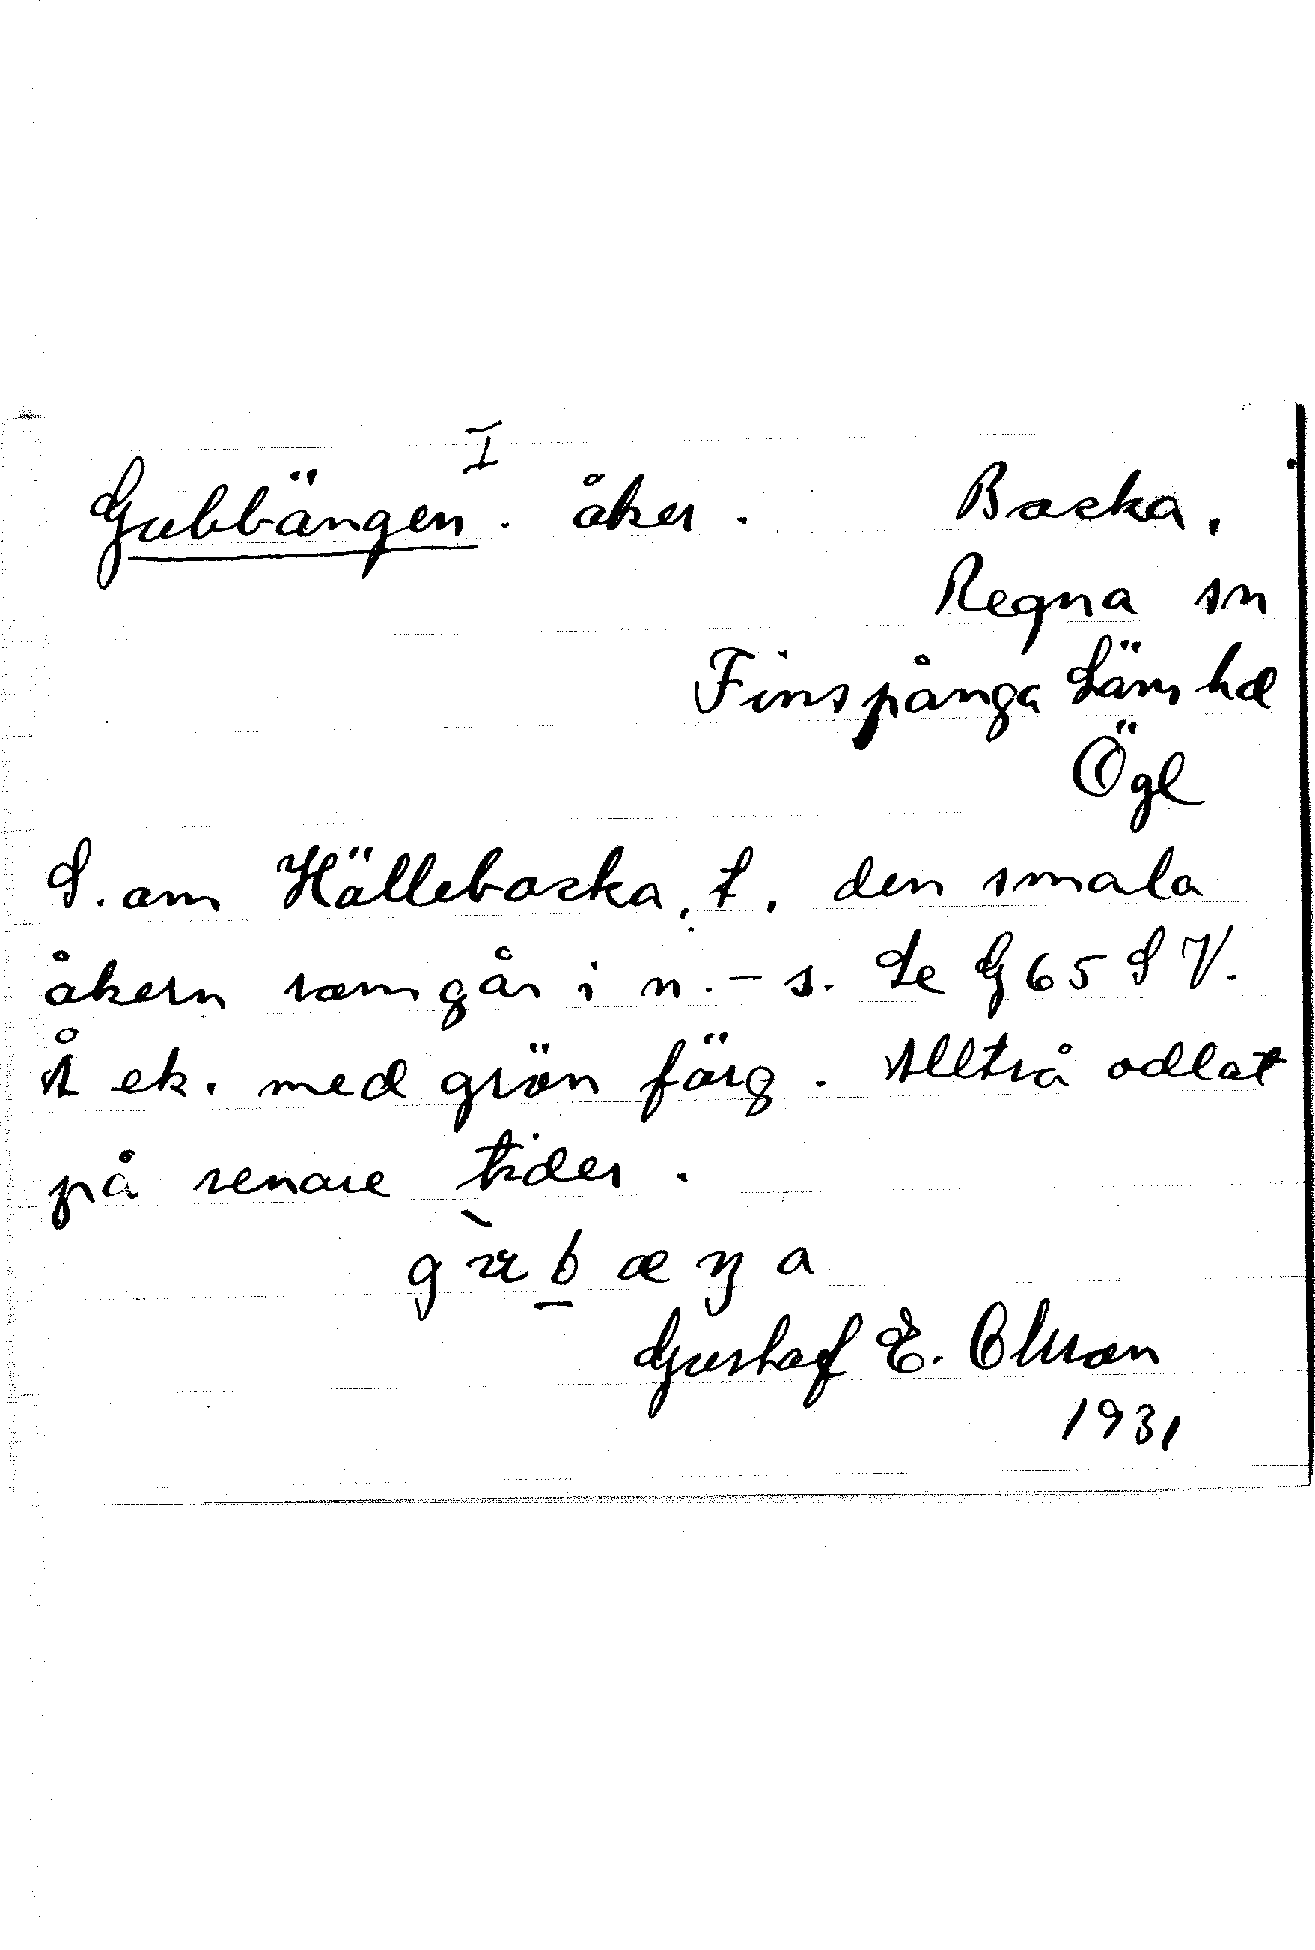 Gubbängen I. åker. Borka.
Regna sn
Finspånga Läns hd
Ögl
S. om Hälleborka, t. den smala
åkern som går i n. - s. Se G 65 S V.
Å ek. med grön färg. Alltså odlat
på senare tider.
Gustaf E. Olsson
1931